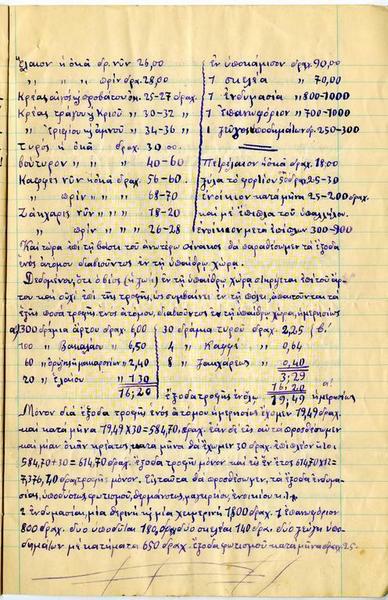 Ἔλαιον ἡ ὀκᾶ δρ. νῦν 26,00
„ „ „ πρὶν δραχ. 28,00
Κρέας αἰγὸς ἢ προβάτου ὀκ. 25-27 δραχ.
Κρέας τράγου ἢ Κριοῦ „ 30-32 „
„ ἐριφίου ἢ ἀμνοῦ „ 34-36 „
Τυρὸς ἡ ὀκᾶ δραχ. 30 00
Βούτυρον „ „ „ 40-60
Καφφὲς νῦν ἡ ὀκᾶ δραχ. 56-60
„ πρὶν „ „ „ 68-70
Ζάκχαρις νῦν „ „ „ 18-20
„ πρὶν „ „ „ 26-28
ἓν ὑποκάμισον δραχ. 90,00
1 σκελέα „ 70,00
1 ἐνδυμασία „ 800-1000
1 ἐπανωφόριον „ 700-1000
1 ζεῦγος ὑποδημάτων δρ. 250-300
Πετρέλαιον ἡ ὀκᾶ δραχ. 18.00
ξύλα τὸ φορτίον δραχ. 25-30
ἐνοίκιον κατὰ μῆνα 25-200 δραχ.
καὶ μὲ ἔπιπλα τοῦ
ἐνοίκιον μετὰ ἐπίπλων 300-900
Καὶ τώρα ἐπὶ τῇ βάσει τοῦ ἀνωτέρω πίνακος θὰ παραθέσωμεν τὰ ἔξοδα
ἑνὸς ἀτόμου διαβιοῦντος ἐν τῇ ὑπαίθρῳ χώρᾳ.
Δεδομένου, ὅτι ὁ βίος (ἡ ζωὴ) ἐν τῇ ὑπαίθρῳ χώρᾳ στηρίζεται ἐπὶ τοῦ ἄρ-
του καὶ οὐχὶ ἐπὶ τῆς τροφῆς, ὡς συμβαίνει ἐν τῇ πόλει, ἀπαιτοῦνται τὰ
ἑξῆς ποσὰ τροφῆς ἑνὸς ἀτόμου, διαβιοῦντος ἐν τῇ ὑπαίθρῳ χώρᾳ, ἡμερησίως
α) 300 δράμια ἄρτου δραχ. 6,00
100 „ „ 6,50
60 „ „ 2,40
20 „ ἐλαίου „ 1 30
16,20
30 δράμια τυροῦ δραχ. 2,25 (β!
4 „ Καφφὲ „ 0,64
8 „ Ζακχάρεως „ 0,40
3,29
16,20 α!
ἔξοδα τροφῆς ἑνὸς 19,49 ἡμερησίως
Μόνον διὰ ἔξοδα τροφῆς ἑνὸς ἀτόμου ἡμερησίως ἔχομεν 19,49 δραχ.
καὶ κατὰ μῆνα 19,49 Χ 30 = 584,70 δραχ. ἐὰν δὲ εἰς αὐτὰ προσθέσωμεν
καὶ μίαν ὀκᾶν κρέατος κατὰ μῆνα θὰ ἔχωμεν 30 δραχ. ἐπιπλέον ἤτοι
584,70 + 30 = 614,70 δραχ. ἔξοδα τροφῆς μόνον καὶ τὸ ἓν ἔτος 614,70 Χ 12 =
7,376,40 δραχ. τροφῆς μόνον. Εἰς ταῦτα θὰ προσθέσωμεν, τὰ ἔξοδα ἐνδυμα-
σίας, ὑποδύσεως, φωτισμοῦ, θερμάνσεως, μαγειρίου, ἐνοικίου κ.λ.π.
2 ἐνδυμασίαι, μία θερινὴ τῇ μία χειμερινὴ 1800 δραχ. 1 ἐπανωφόριον
800 δραχ. δύο ὑποδῦται 180 δραχ. δύο σκελέαι 140 δρα. δύο ζεύγη ὑπο-
δημάτων μὲ κατήματα 650 δραχ. ἔξοδα φωτισμοῦ κατὰ μῆνα δραχ. 25.-